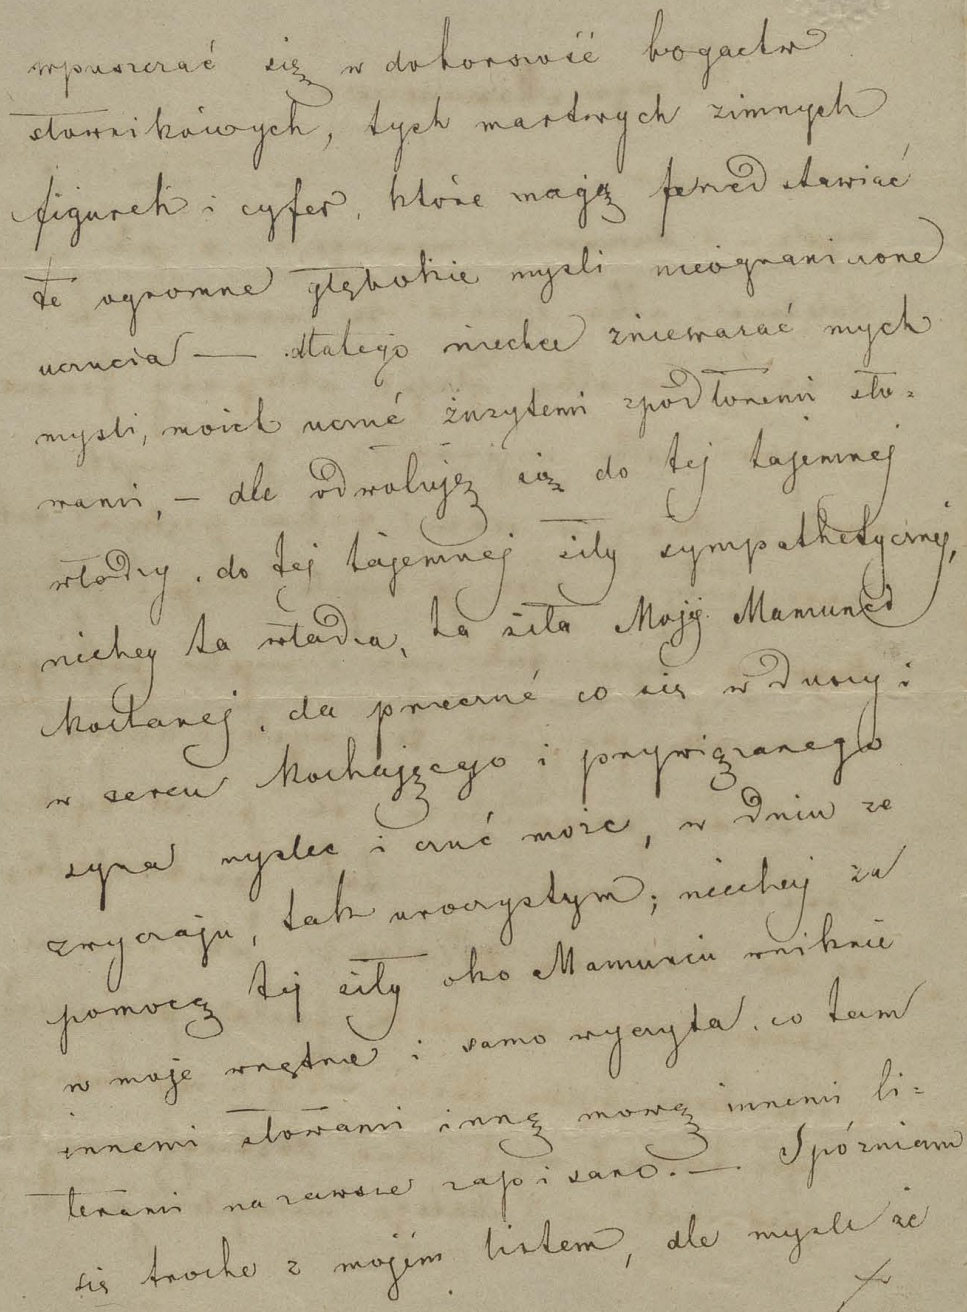 wpuszczać się w doborowość bogactw
słownikówych, tych martwych zimnych
figurek i cyfer, które mają przedstawiać
te ogromne głębokie mysli nieograniczone
uczucia — dlatego niechce znieważać mych
mysli, moich uczuć zużytemi spodlonemi sło-
wami, — ale odwołuję się do tej tajemnej
władzy, do tej tajemnej siły sympathetycznej,
niechej ta władza, ta siła Mojéj Mamuneci
kochanej, da przeczuć co się w duszy i
w sercu kochającego i przywiązanego
syna myslec i czuć może, w dniu ze
zwyczaju, tak uroczystym; niechej za
pomocą tej siły oko Mamuniu wniknie
w moje wnętrze i samo wyczyta, co tam
innemi słowami inną mową innemi li-
terami na zawsze zapisano. — Spózniam
się troche z mojém listem, ale mysle że